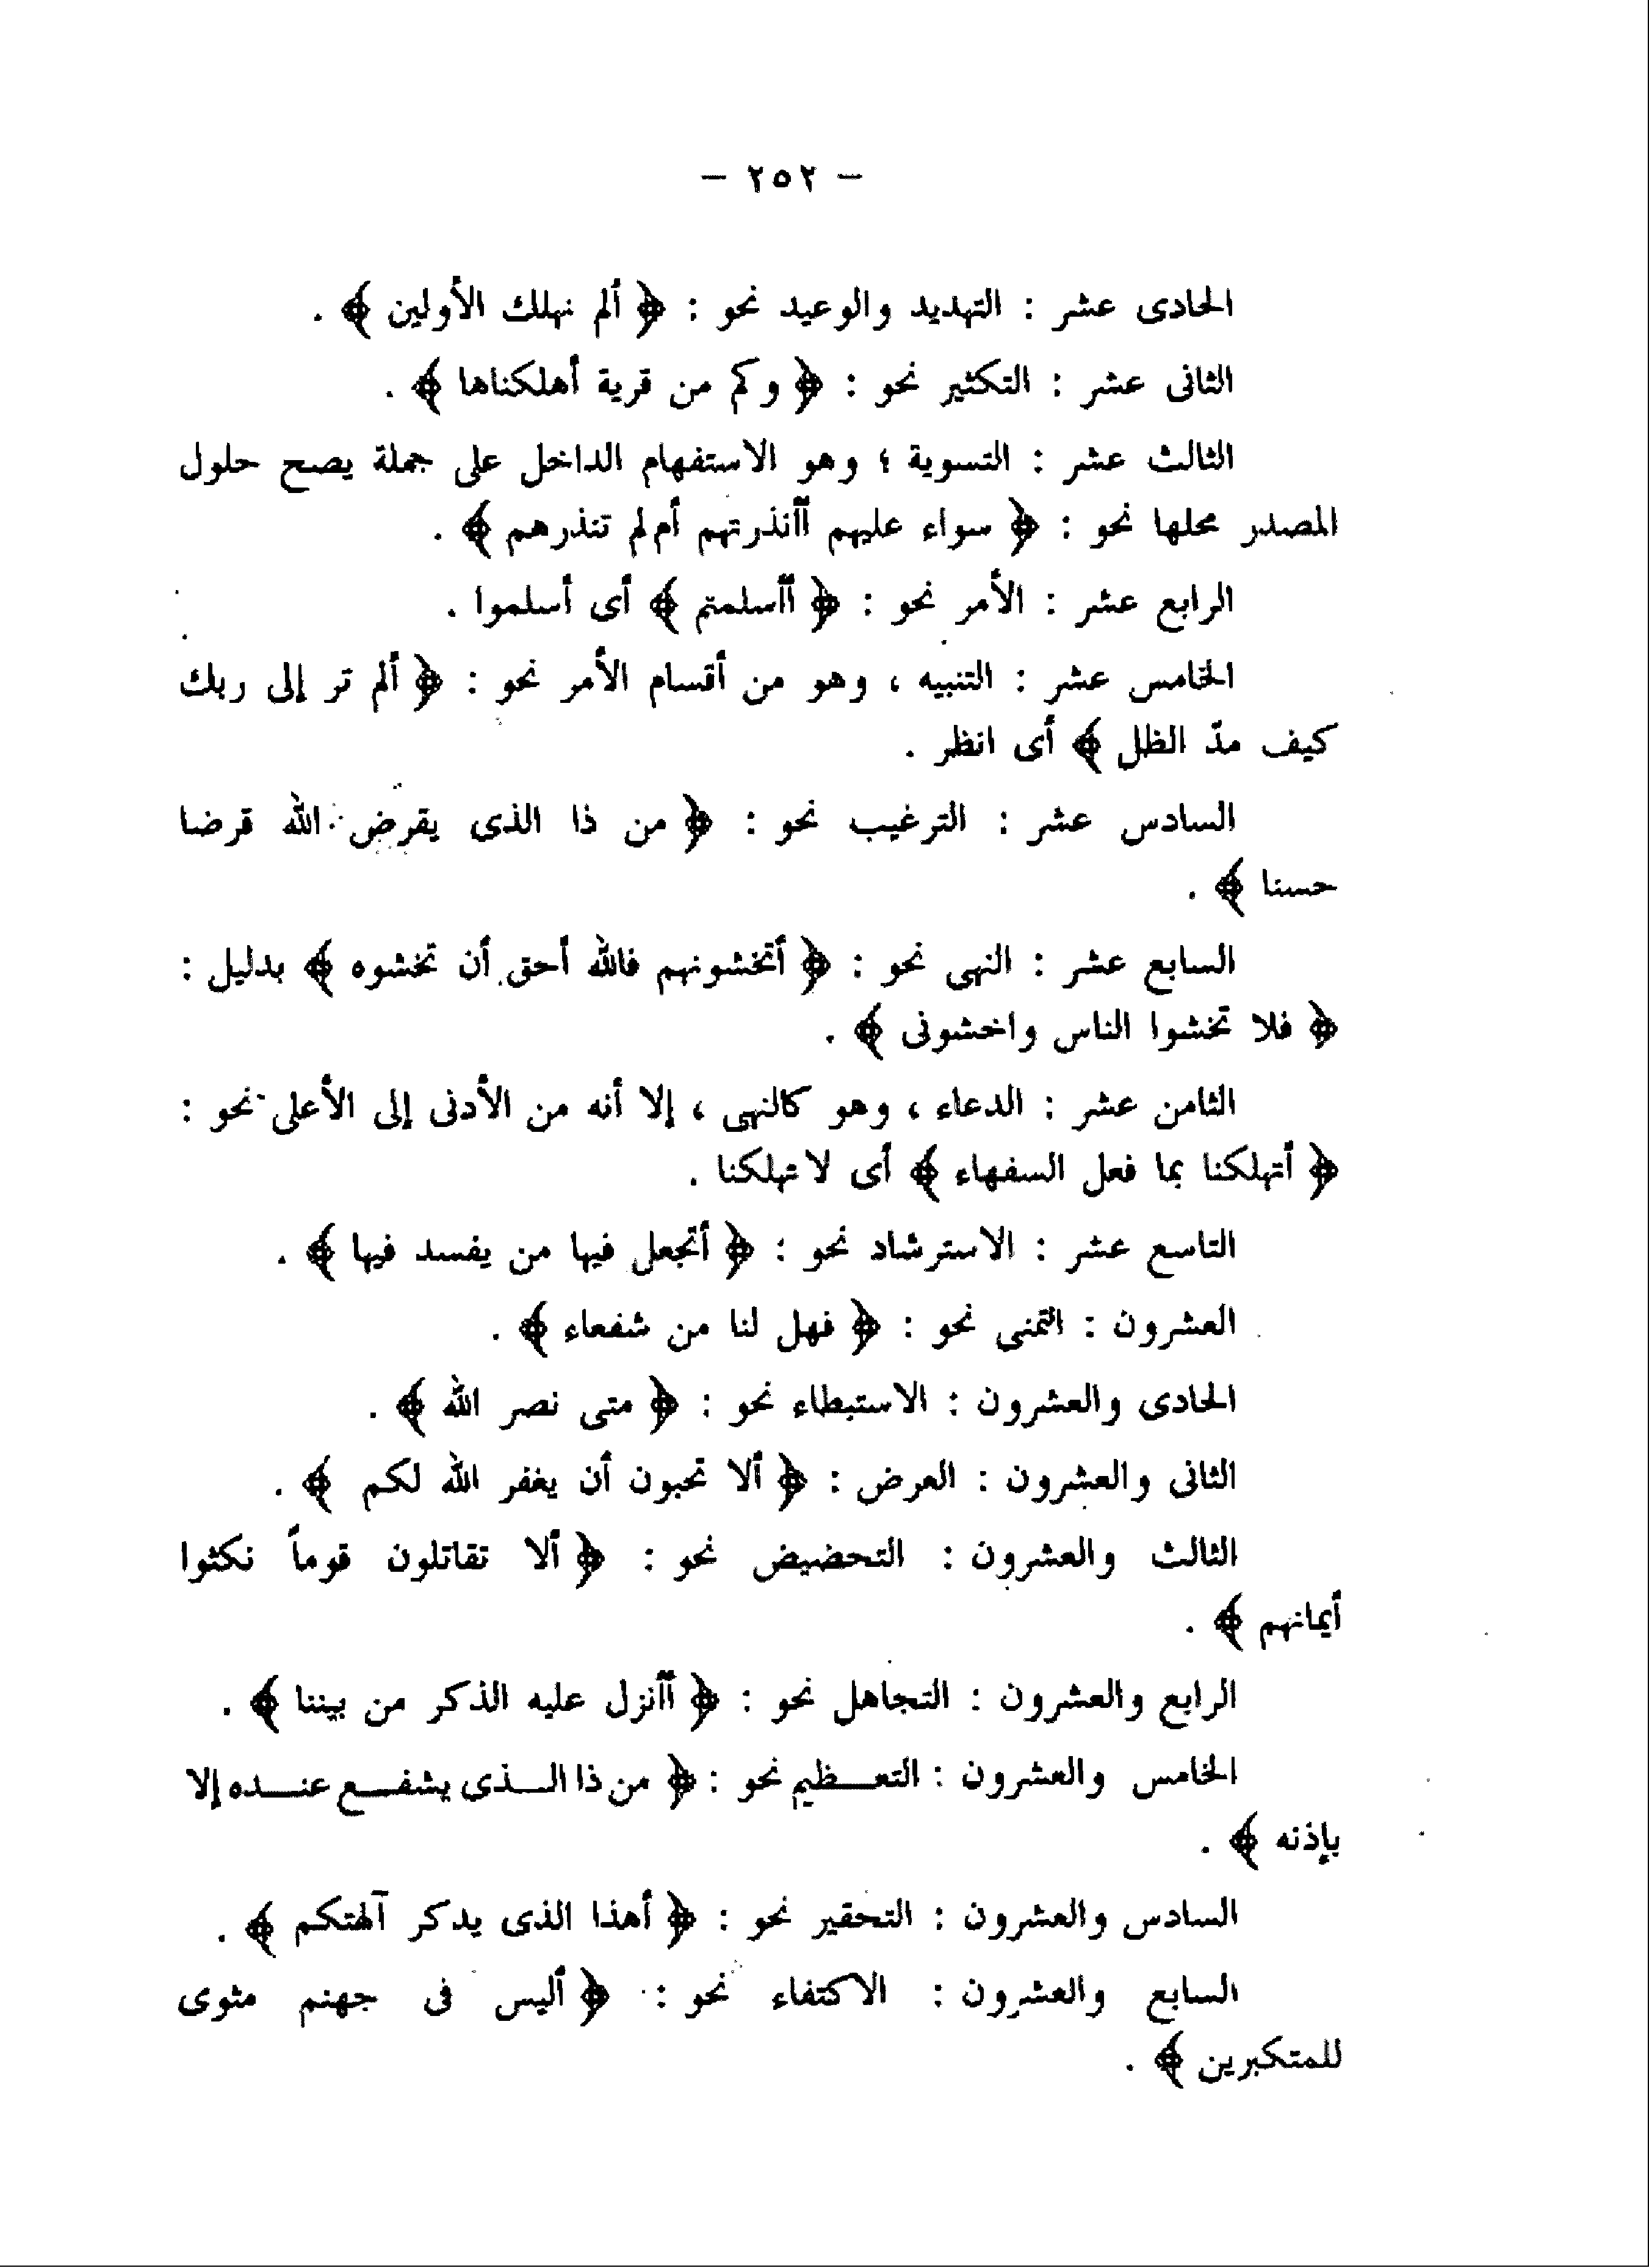 – ٢٥٢ –
الحادى عشر : التهديد والوعيد نحو : ﴿ ألم نهلك الأولين ﴾ .
الثانى عشر : التكثير نحو : ﴿ وكم من قرية أهلكناها ﴾ .
الثالث عشر : التسوية ؛ وهو الاستفهام الداخل على جملة يصح حلول
المصدر محلها نحو : ﴿ سواء عليهم أأنذرتهم أم لم تنذرهم ﴾ .
الرابع عشر : الأمر نحو : ﴿ أأسلمتم ﴾ أى أسلموا .
الخامس عشر : التنبيه ، وهو من أقسام الأمر نحو : ﴿ ألم تر إلى ربك
كيف مدّ الظل ﴾ أى انظر .
السادس عشر : الترغيب نحو : ﴿ من ذا الذى يقرض الله قرضا
حسنا ﴾ .
السابع عشر : النهى نحو : ﴿ أتخشونهم فالله أحق أن تخشوه ﴾ بدليل :
﴿ فلا تخشوا الناس واخشونى ﴾ .
الثامن عشر : الدعاء ، وهو كالنهى ، إلا أنه من الأدنى إلى الأعلى نحو :
﴿ أتهلكنا بما فعل السفهاء ﴾ أى لا تهلكنا .
التاسع عشر : الاسترشاد نحو : ﴿ أتجعل فيها من يفسد فيها ﴾ .
العشرون : التمنى نحو : ﴿ فهل لنا من شفعاء ﴾ .
الحادى والعشرون : الاستبطاء نحو : ﴿ متى نصر الله ﴾ .
الثانى والعشرون : العرض : ﴿ ألا تحبون أن يغفر الله لكم ﴾ .
الثالث والعشرون : التحضيض نحو : ﴿ ألا تقاتلون قوماً نكثوا
أيمانهم ﴾ .
الرابع والعشرون : التجاهل نحو : ﴿ أأنزل عليه الذكر من بيننا ﴾ .
الخامس والعشرون : التعـظيم نحو : ﴿ من ذا الـذى يشفـع عنـده إلا
بإذنه ﴾ .
السادس والعشرون : التحقير نحو : ﴿ أهذا الذى يدكر آلهتكم ﴾ .
السابع والعشرون : الاكتفاء نحو : ﴿ أليس فى جهنم مثوى
للمتكبرين ﴾ .